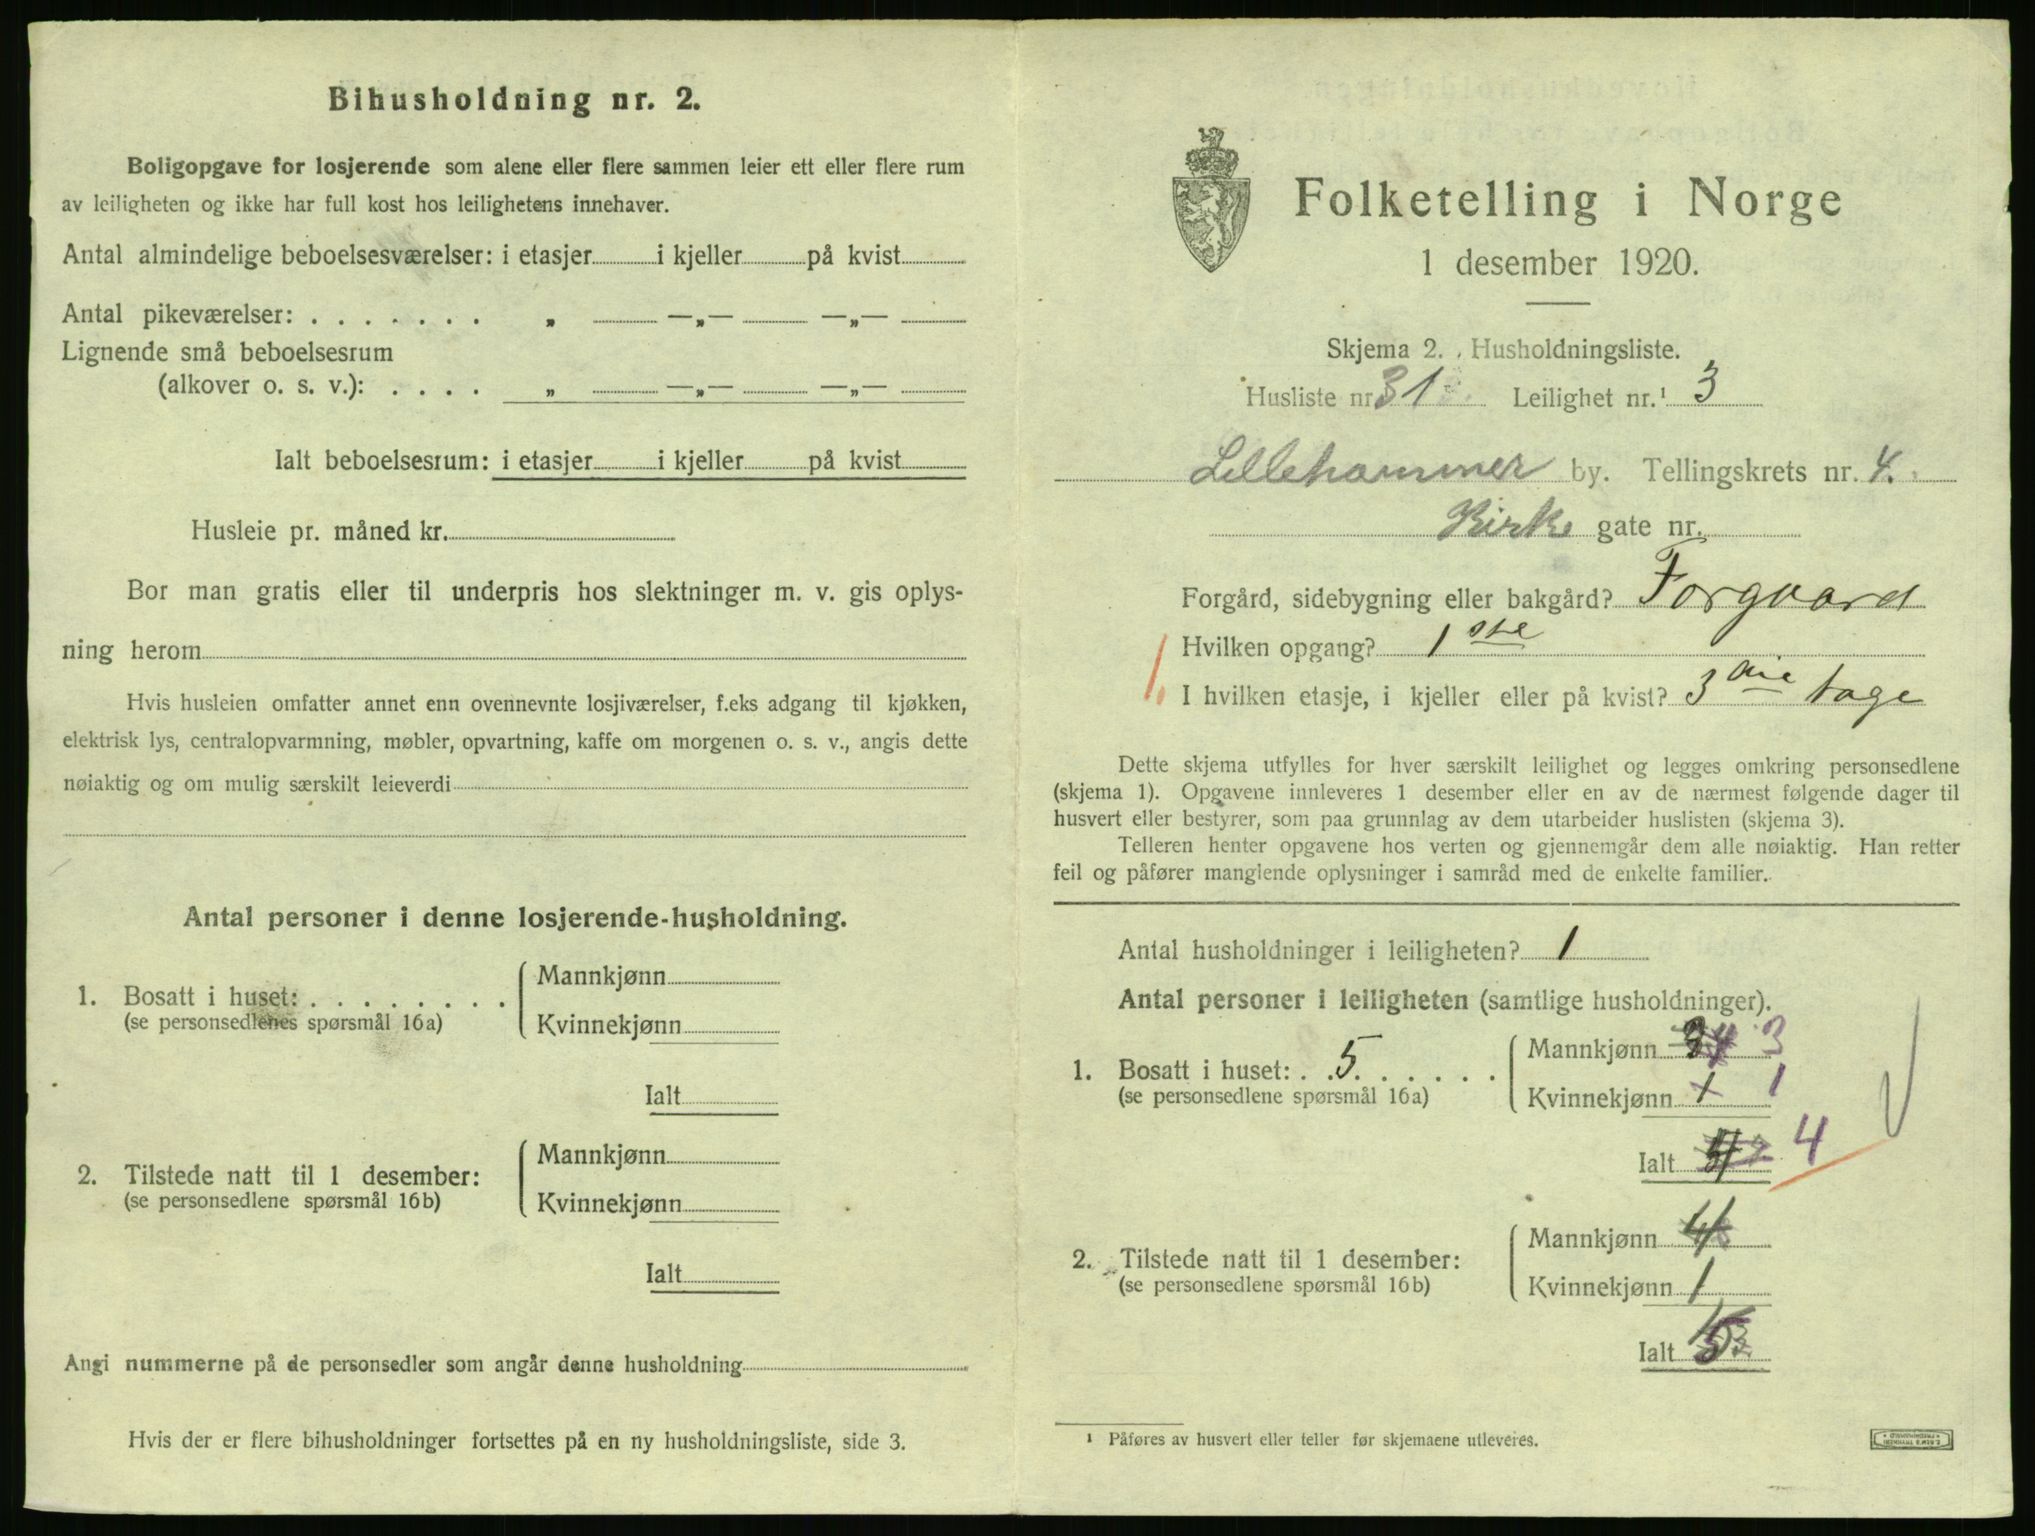 Bihusholdning nr. 2.
Boligopgave for losjerende som alene eller flere sammen leier ett eller flere rum
av leiligheten og ikke har full kost hos leilighetens innehaver.
Antal almindelige beboelsesværelser: i etasjer i kjeller på kvist
Antal pikeværelser: . . . . . . . „ —„— —„—
Lignende små beboelsesrum
(alkover o. s. v.): . . . . „ —„— —„—
Ialt beboelsesrum: i etasjer i kjeller på kvist
Husleie pr. måned kr.
Bor man gratis eller til underpris hos slektninger m. v. gis oplys-
ning herom
Hvis husleien omfatter annet enn ovennevnte losjiværelser, f.eks adgang til kjøkken,
elektrisk lys, centralopvarmning, møbler, opvartning, kaffe om morgenen o. s. v., angis dette
nøiaktig og om mulig særskilt leieverdi
Antal personer i denne losjerende-husholdning.
1. Bosatt i huset: . . . . . . . .
(se personsedlenes spørsmål 16a)
Mannkjønn
Kvinnekjønn
Ialt
2. Tilstede natt til 1 desember:
(se personsedlene spørsmål 16b)
Mannkjønn
Kvinnekjønn
Ialt
Angi nummerne på de personsedler som angår denne husholdning
Hvis der er flere bihusholdninger fortsettes på en ny husholdningsliste, side 3.
Folketelling i Norge
1 desember 1920.
Skjema 2. Husholdningsliste.
Husliste nr. 31 Leilighet nr.¹ 3
Lillehammer by. Tellingskrets nr. 4.
Kirke gate nr.
Forgård, sidebygning eller bakgård? Forgaard
Hvilken opgang? 1 ste
I hvilken etasje, i kjeller eller på kvist? 3 die tage
Dette skjema utfylles for hver særskilt leilighet og legges omkring personsedlene
(skjema 1). Opgavene innleveres 1 desember eller en av de nærmest følgende dager til
husvert eller bestyrer, som paa grunnlag av dem utarbeider huslisten (skjema 3).
Telleren henter opgavene hos verten og gjennemgår dem alle nøiaktig. Han retter
feil og påfører manglende oplysninger i samråd med de enkelte familier.
Antal husholdninger i leiligheten? 1
Antal personer i leiligheten (samtlige husholdninger).
1. Bosatt i huset: . . 5. . . . . .
(se personsedlene spørsmål 16a)
Mannkjønn 3
Kvinnekjønn 1 1
Ialt 4
2. Tilstede natt til 1 desember:
(se personsedlene spørsmål 16b)
Mannkjønn 4
Kvinnekjønn 1
Ialt 5
¹ Påføres av husvert eller teller før skjemaene utleveres.